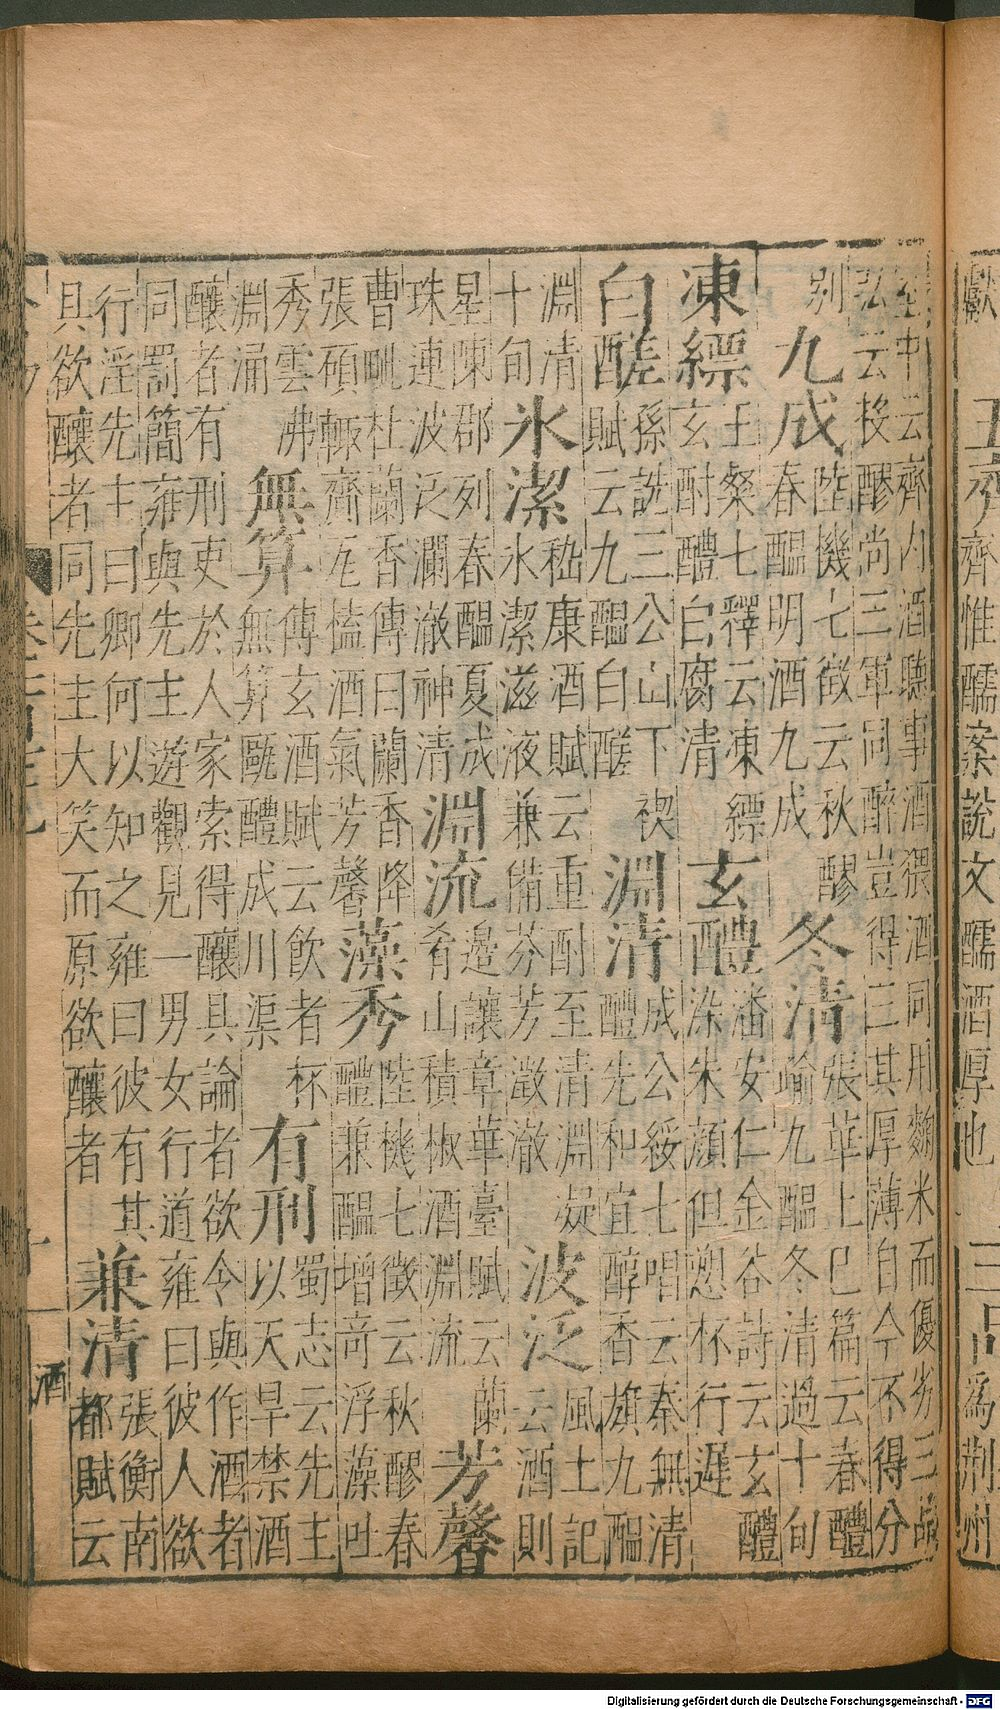 獻 五齊 齊惟醹案說文醹酒厚也 三品 爲荆州
中云齊内酒聴事酒猥酒同用麴米而優劣三品
弘云按醪尚三軍同醉豈得三其厚薄自今不得分
别
九成
陸機七徵云秋醪
春醖明酒九成
冬清
張華上巳篇云春醴
踰九醖冬清過十旬
凍縹
王粲七釋云凍縹
玄酎醴白腐清
玄醴
潘安仁金谷詩云玄醴
染朱顔但愬杯行遲
白醝
孫詵三公山下禊
賦云九醖白醝
淵清
成公綏七唱云秦無清
醴先和宜醇香旗九醖
淵清
十旬
氷潔
嵇康酒賦云重酎至清淵凝
氷潔滋液兼備芬芳澂澈
波泛
風土記
云酒則
星陳郡列春醖夏成
珠連波泛瀾澈神清
淵流
邊讓章華臺賦云蘭
肴山積椒酒淵流
芳馨
曹毗杜蘭香傳曰蘭香降
張碩輙齎瓦榼酒氣芳馨
藻秀
陸機七徵云秋醪春
醴兼醖增奇浮藻吐
秀雲沸
淵涌
無算
傅玄酒賦云飲者杯
無算甌醴成川渠
有刑
蜀志云先主
以天旱禁酒
釀者有刑吏於人家索得釀具論者欲令與作酒者
同罰簡雍與先主遊觀見一男女行道雍曰彼人欲
行淫先主曰卿何以知之雍曰彼有其
具欲釀者同先主大笑而原欲釀者
兼清
張衡南
都賦云
酒
Digitalisierung gefördert durch die Deutsche Forschungsgemeinschaft - DFG